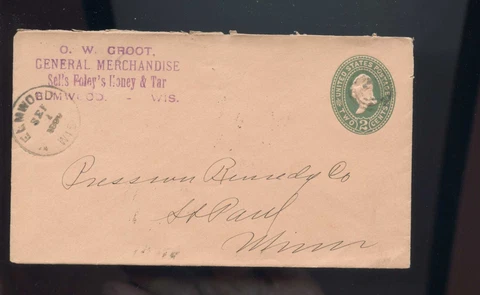 O. W. GROOT,
GENERAL MERCHANDISE
Sells Foley's Honey & Tar
WIS.
ELMWOOD
WIS
SEP
1
UNITED STATES POSTAGE
TWO 2 CENTS
Remedy Co
St Paul
Minn